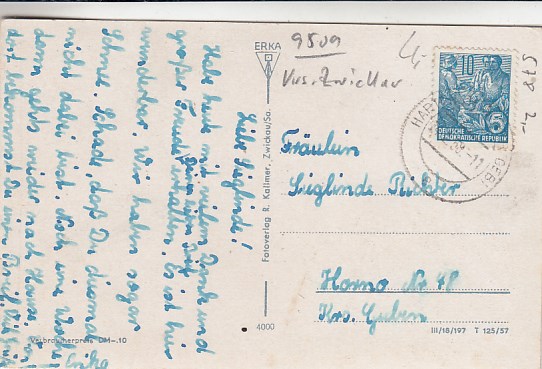 Liebe Sieglinde!
Habe heut mit vielem Dank und
großer Freude Deinen erhalten. Es ist hier
wunderbar. Wir haben sogar
Schnee. Schade, daß Du diesmal
nicht dabei bist. Noch eine Woche
dann geht's wieder nach Hause.
bekommst Du
ERKA
Fotoverlag R. Kallmer, Zwickau/Sa.
4000
Verbraucherpreis DM-.10
9509
Vus. Zwickau
4,-
578
2,-
10
5
DEUTSCHE
DEMOKRATISCHE REPUBLIK
Fräulein
Sieglinde Richter
Horno Nr. 48
Krs. Guben
III/18/197 T 125/57